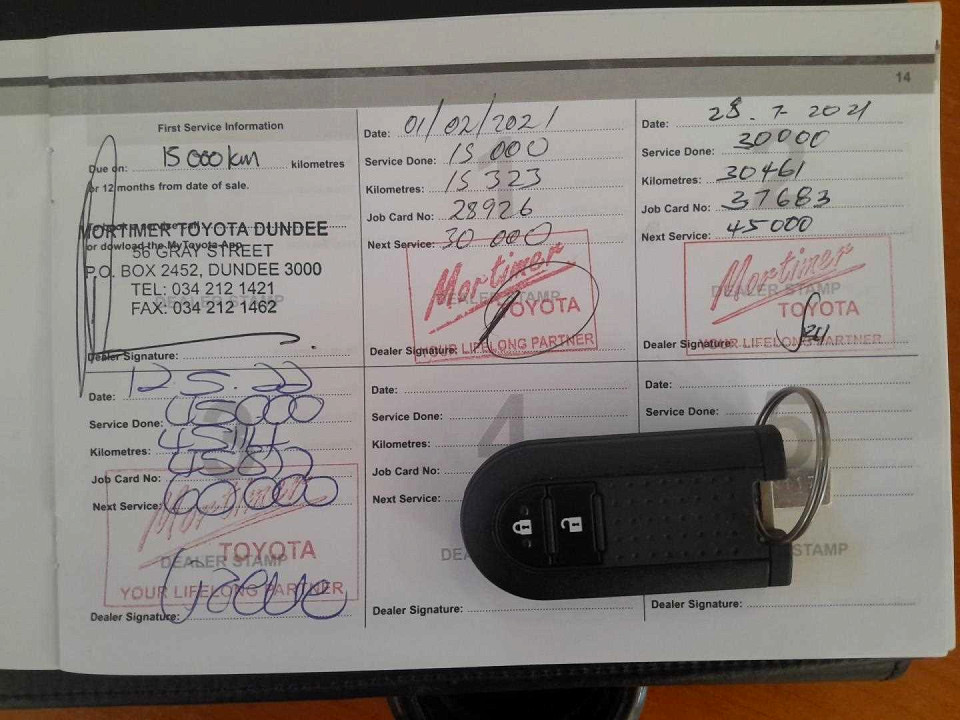 14
First Service Information
Due on: 15 000km kilometres
or 12 months from date of sale.
MORTIMER TOYOTA DUNDEE
or dowload the MyToyota App
56 GRAY STREET
P.O. BOX 2452, DUNDEE 3000
TEL: 034 212 1421
FAX: 034 212 1462
DEALER STAMP
Dealer Signature:
Date: 01/02/2021
Service Done: 15 000
Kilometres: 15 323
Job Card No: 28926
Next Service: 30 000
Mortimer
DEALER STAMP
TOYOTA
YOUR LIFELONG PARTNER
Dealer Signature:
Date: 28.7-2021
Service Done: 30000
Kilometres: 30461
Job Card No: 37683
Next Service: 45000
Mortimer
DEALER STAMP
TOYOTA
YOUR LIFELONG PARTNER
Dealer Signature:
Date: 12.5.22
Service Done: 45000
Kilometres:
Job Card No:
Next Service: 60000
Mortimer
TOYOTA
DEALER STAMP
YOUR LIFELONG PARTNER
Dealer Signature:
Date:
Service Done:
4
Kilometres:
Job Card No:
Next Service:
Dealer Signature:
Date:
Service Done:
STAMP
Dealer Signature: